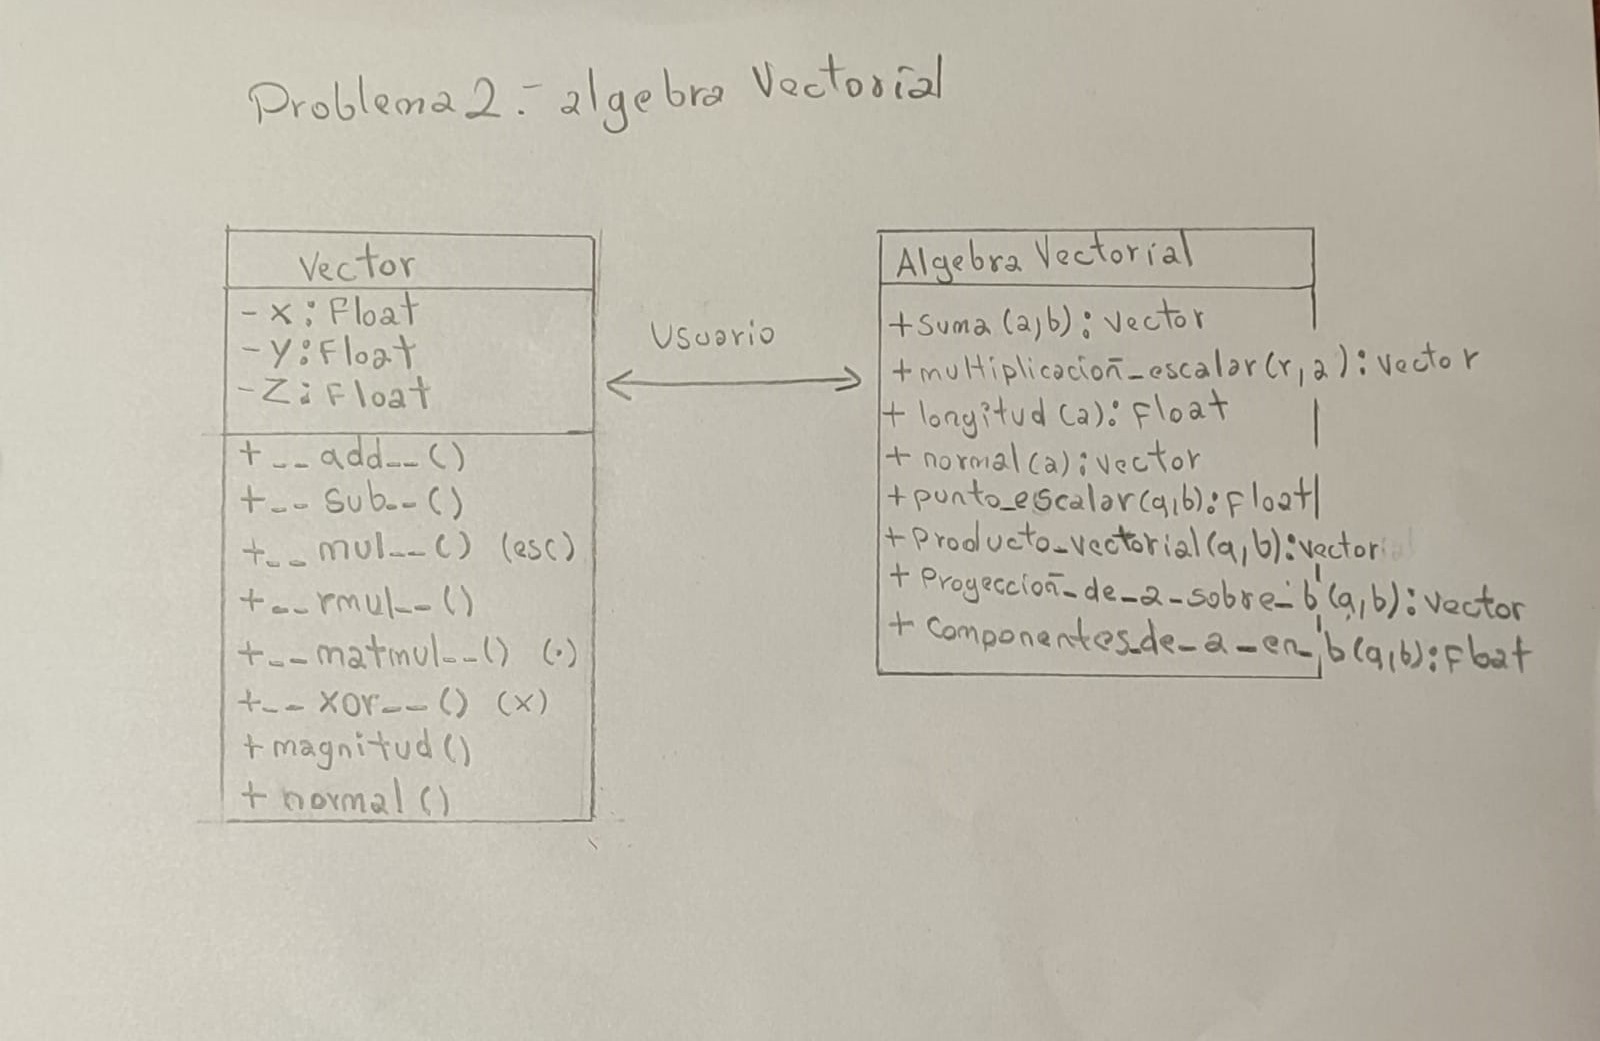 Problema 2.- algebra Vectorial
Vector
- x: Float
- y: Float
- z: Float
+ __add__()
+ __sub__()
+ __mul__() (esc)
+ __rmul__()
+ __matmul__() (·)
+ __xor__() (x)
+ magnitud()
+ normal()
Usuario
Algebra Vectorial
+ suma (a,b): vector
+ multiplicación_escalar(r,a): vector
+ longitud (a): Float
+ normal(a): vector
+ punto_escalar(a,b): Float
+ Producto_vectorial(a,b): vector
+ Proyección_de_a_sobre_b(a,b): vector
+ componentes_de_a_en_b(a,b): Float